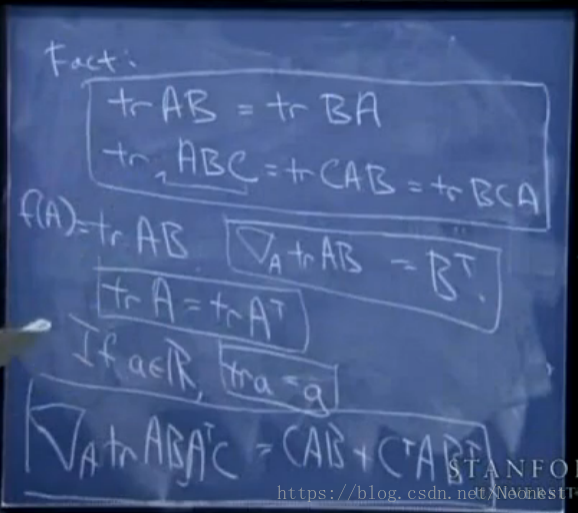 Fact:
tr AB = tr BA
tr ABC = tr CAB = tr BCA
f(A) = tr AB ∇_A tr AB = Bᵀ.
tr A = tr Aᵀ
If a∈ℝ, tr a = a
∇_A tr ABAᵀC = CAB + CᵀABᵀ
STANFO
UNIVERSIT
https://blog.csdn.net/Noonest